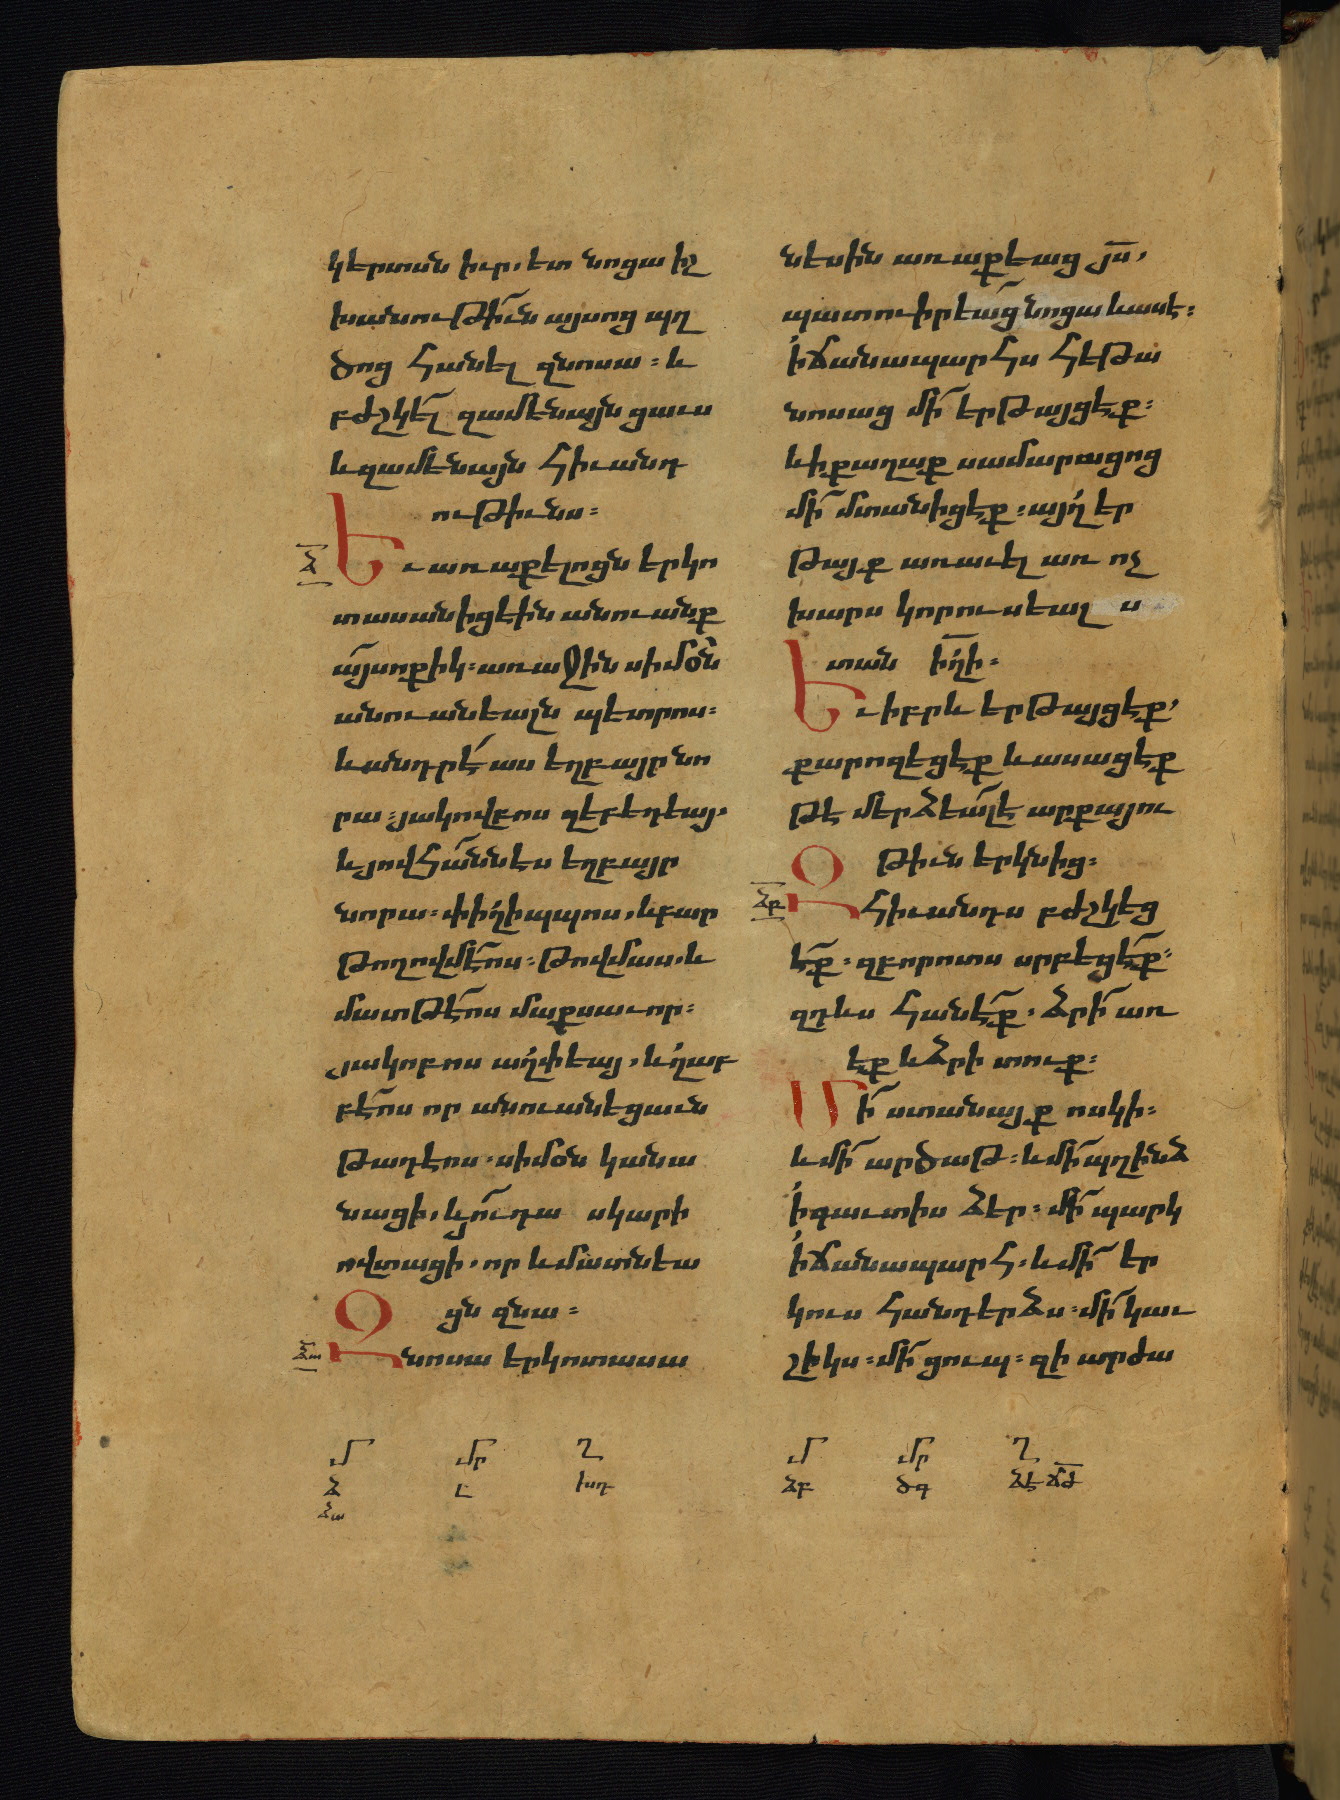 կերտսն իւր, ետ նոցա իշ
խանութի՟ւն այսոց պղ
ծոց հանել զնոսա։ և
բժշկե՟լ զամենայն ցաւս
և զամենայն հիւանդ
ութիւնս։
Ծ
Եւ առաքելոցն երկո
տասանիցէին անուանք
ա՟յսոքիկ։ առաջին սիմօ՟ն
անուանեալն պետրոս։
և անդրէ՛աս եղբայր նո
րա։ յակովբոս զեբեդեայ,
և յովհա՟ննէս եղբայր
նորա։ փիղիպպոս, և բար
թողովմէ՟ոս։ թովմաս, և
մատթէ՟ոս մաքսաւոր։
յակոբոս աղփեայ, և ղաբ
բէ՟ոս որ անուանեցաւն
թադէոս։ սիմօն կանա
նացի, և յո՟ւդա սկարի
ովտացի, որ և մատնեա
ցն զնա։
ձա
Զնոսա երկոտասա
նեսին առաքեաց յս՟,
պատուիրեա՟ց նոցա և ասէ։
ի՛ ճանապարհս հեթա
նոսաց մի՟ երթայցեք։
և ի քաղաք սամարացոց
մի՟ մտանիցեք։ այղ՟ եր
թայք առաւել առ ոչ
խարս կորուսեալ ս
տան ի՟ղի։
Եւ իբրև երթայցեք,
քարոզեցեք և ասացեք
թե մերձեա՟լ է արքայու
թիւն երկնից։
ձբ
Զհիւանդս բժշկեց
ե՟ք։ զբորոտս սրբեցե՟ք։
զդևս հանե՟ք, ձրի՟ առ
եք և ձրի տուք։
Մի՟ ստանայք ոսկի։
և մի՟ արծաթ։ և մի՟ պղինձ
ի՛ գաւտիս ձեր։ մի՟ պարկ
ի՛ ճանապարհ։ և մի՟ եր
կուս հանդերձս։ մի՟ կաւ
շիկս։ մի՟ ցուպ։ զի արժա
մ մր ղ մ մր ղ
ձ ը խդ ձբ ծգ ձէ ճժ
ձա